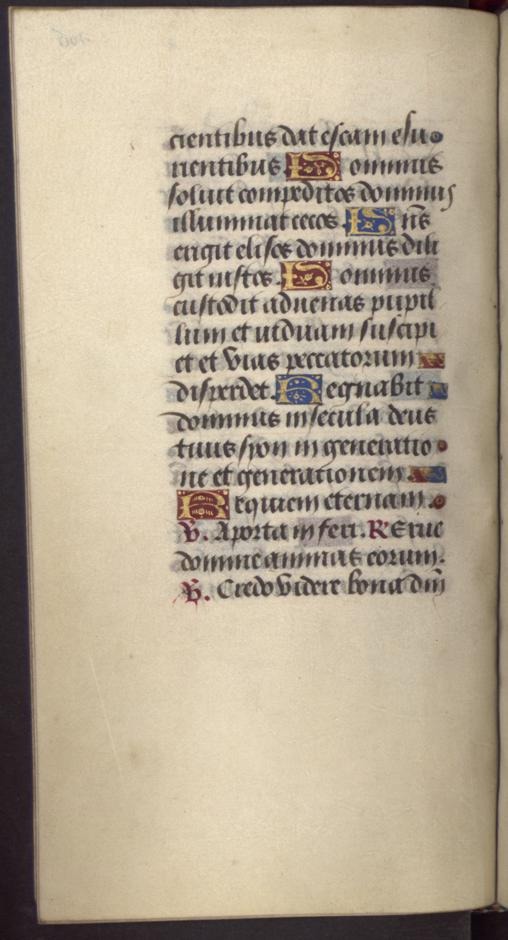 cientibus dat escam esu
rientibus Dominus
soluit compeditos dominus
illuminat cecos Dñs
erigit elisos dominus dili
git iustos. Dominus
custodit aduenas pupil
lum et uiduam suscipi
et et vias peccatorum
disperdet. Regnabit
dominus in secula deus
tuus syon in generatio
ne et generationem.
Requiem eternam.
V. A porta inferi. R Erue
domine animas eorum.
V. Credo videre bona dñi